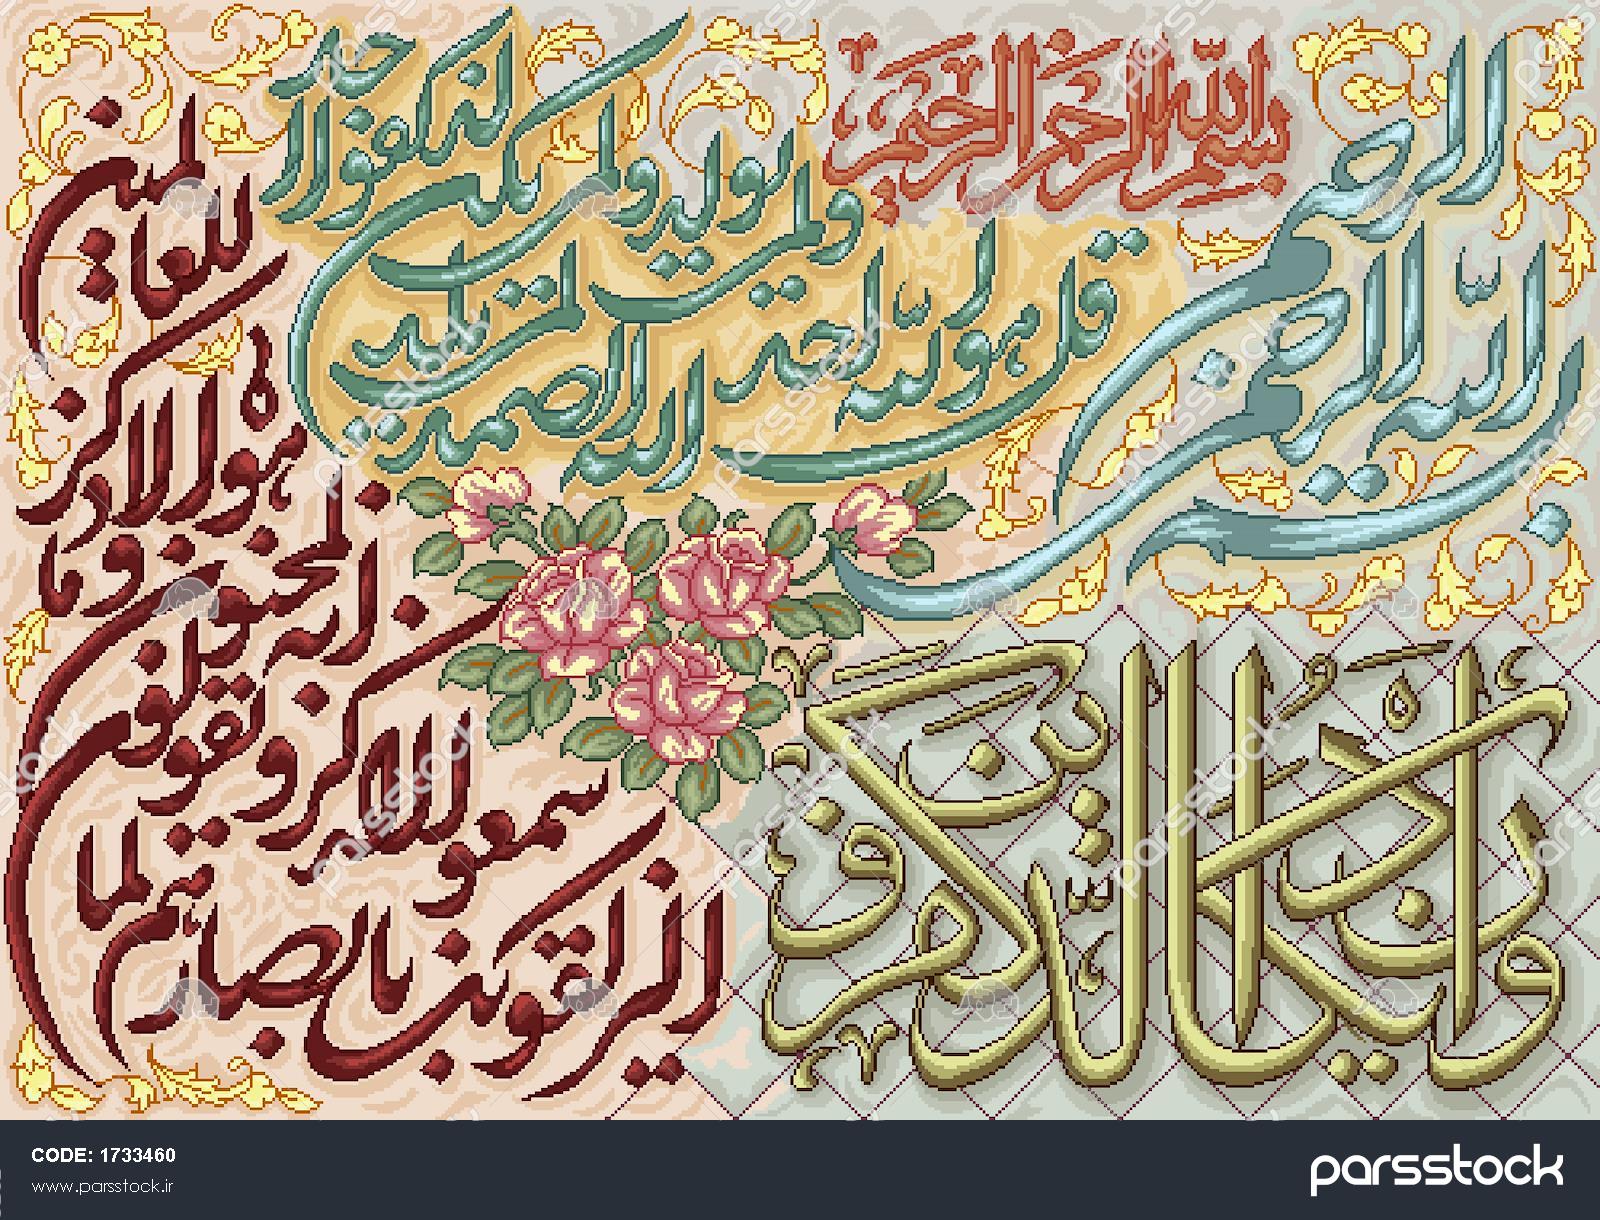 بسم الله الرحمن الرحيم
بسم الله الرحمن الرحيم
قل هو الله احد
الله الصمد
لم يلد ولم يولد ولم يكن له كفوا احد
وان يكاد الذين كفروا
ليزلقونك بابصارهم لما
سمعوا الذكر ويقولون
انه لمجنون وما
هو الا ذكر
للعالمين
parsstock
CODE: 1733460
www.parsstock.ir
parsstock